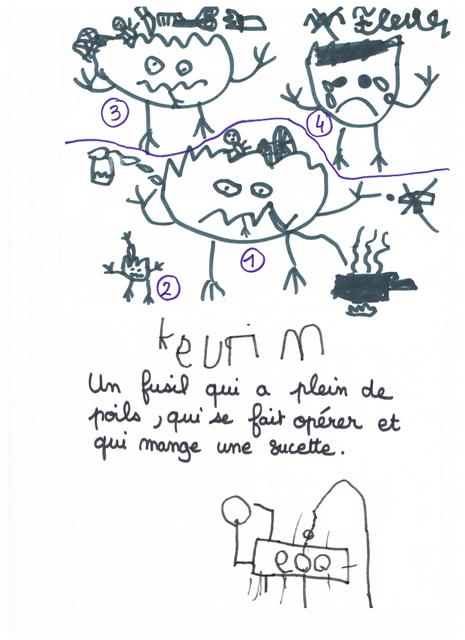 3
4
1
2
Un fusil qui a plein de
poils, qui se fait opérer et
qui mange une sucette.